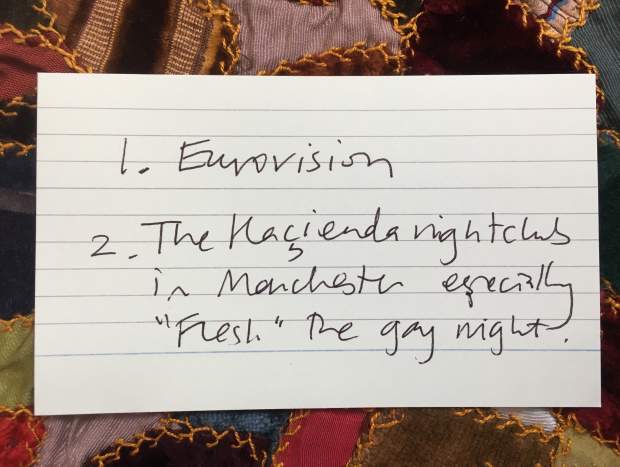 1. Eurovision
2. The Haçienda nightclub
in Manchester especially
"Flesh" the gay night.